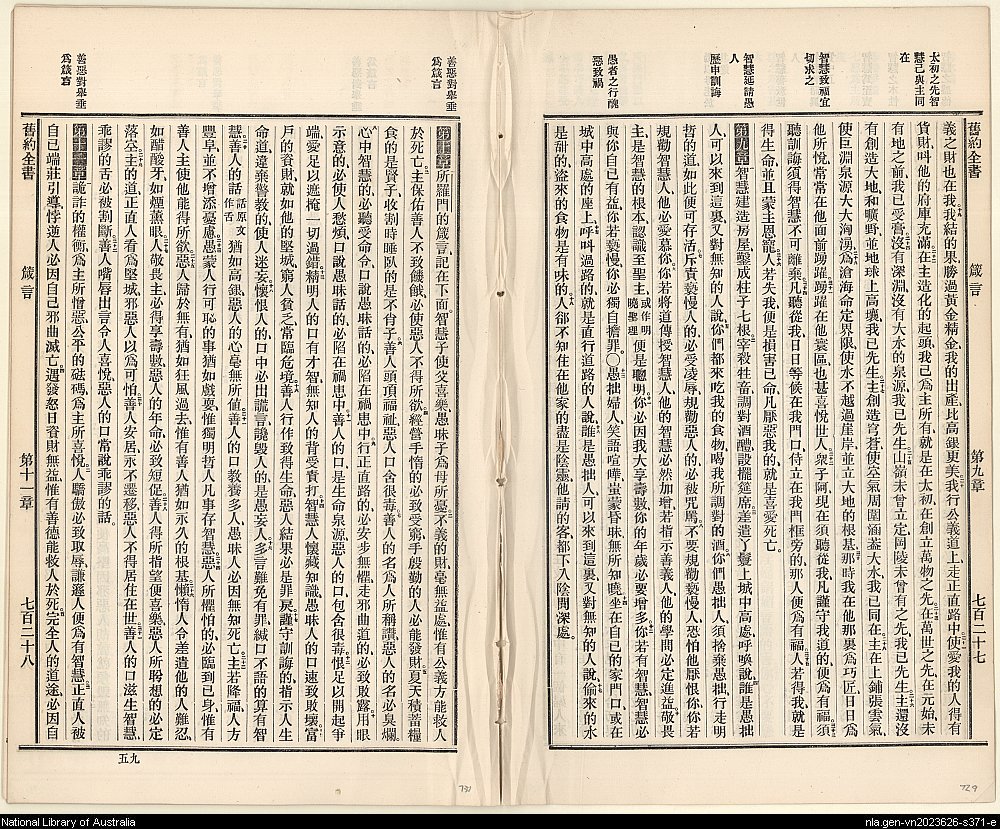 太初之先智
慧己與主同
在
智慧致福宜
切求之
智慧延請愚
人
歷申訓誨
愚者之行醜
惡致禍
舊約全書
箴言
第九章
七百二十七
義之財也在我我結的果勝過黃金精金我的出產比高銀更美我行公義道上走正直路中使愛我的人得有
貨財叫他的府庫充滿在主造化的起頭我已爲主所有就是在太初在創立萬物之先在萬世之先在元始未
有地之前我已受膏沒有深淵沒有大水的泉源我已先生山嶺未曾立定岡陵未曾有之先我已先生主還沒
有創造大地和曠野並地球上高壤我已先生主創造穹蒼使空氣周圍涵蓋大水我已同在主在上鋪張雲氣
使巨淵泉源大大洶湧爲滄海命定界限使水不越過崖岸並立大地的根基那時我在他那裏爲巧匠日日爲
他所悅常常在他面前踴躍踴躍在他寰區也甚喜悅世人衆子阿現在須聽從我凡謹守我道的便爲有福須
聽訓誨須得智慧不可離棄凡聽從我日日等候在我門口侍立在我門框旁的那人便爲有福人若得我就是
得生命並且蒙主恩寵人若失我便是損害己命凡厭惡我的就是喜愛死亡
第九章智慧建造房屋鑿成柱子七根宰殺牲畜調對酒醴設擺筵席差遣丫鬟上城中高處呼喚說誰是愚拙
人可以來到這裏又對無知的人說你們都來吃我的食物喝我所調對的酒你們愚拙人須捨棄愚拙行走明
哲的道如此便可存活斥責褻慢人的必受凌辱規勸惡人的必被咒罵不要規勸褻慢人恐怕他厭恨你你若
規勸智慧人他必愛慕你你若將道傳授智慧人他的智慧必然加增若指示善義人他的學問必定進益敬畏
主是智慧的根本認識至聖主或作明曉聖理便是聰明你必因我大享壽數你的年歲必要增多你若有智慧智慧必
與你自已有益你若褻慢你必獨自擔罪○愚拙婦人笑語喧嘩蚩蒙昏昧無所知曉坐在自已的家門口或在
城中高處的座上呼叫過路的就是直行道路的人說誰是愚拙人可以來到這裏又對無知的人說偷來的水
是甜的盜來的食物是有味的人卻不知住在他家的盡是陰靈他請的客都下入陰間深處
善惡對舉垂
爲箴言
善惡對舉垂
爲箴言
第十章所羅門的箴言記在下面智慧子使父喜樂愚昧子爲母所憂不義的財毫無益處惟有公義方能救人
於死亡主保佑善人不致饑餓必使惡人不得所欲經營手惰的必致受窮手殷勤的人必能發財夏天積蓄糧
食的是賢子收割時睡臥的是不肖子善人頭頂福祉惡人口舍很毒善人的名爲人所稱讚惡人的名必臭爛
心中智慧的必聽受命令口說愚昧話的必陷在禍患中行正直路的必安步無懼走邪曲道的必致敗露用眼
示意的必使人愁煩口說愚昧話的必陷在禍患中善人的口是生命泉源惡人的口包含很毒恨足以開起爭
端愛足以遮掩一切過錯精明人的口有才智無知人的背受責打智慧人懷藏知識愚昧人的口速致敗壞富
戶的貲財就如他的堅城窮人貧乏常臨危境善人行作致得生命惡人結果必是罪戾謹守訓誨的指示人生
命道違棄警教的使人迷妄懷恨人的口中必出謊言讒毀人的是愚妄人多言難免有罪緘口不語的算有智
慧善人的話話原文作舌猶如高銀惡人的心毫無所值善人的口教養多人愚昧人必因無知死亡主若降福人方
豐阜並不增添憂慮愚蒙人行可恥的事猶如戲耍惟獨明哲人凡事存智慧惡人所懼怕的必臨到已身惟有
善人主使他能得所欲惡人歸於無有猶如狂風過去惟有善人猶如永久的根基懶惰人令差遣他的人難忍
如醋酸牙如煙薰眼人敬畏主必得享壽數惡人的年命必致短促善人得所指望便喜樂惡人所盼想的必定
落空主的道正直人看爲堅城邪惡人以爲可怕善人安居永不遷移惡人不得居住在世善人的口滋生智慧
乖謬的舌必被割斷善人嘴唇出言令人喜悅惡人的口常說乖謬的話
第十一章詭詐的權衡爲主所憎惡公平的砝碼爲主所喜悅人驕傲必致取辱謙遜人便爲有智慧正直人被
自已端莊引導悖逆人必因自已邪曲滅亡遇發怒日貲財無益惟有善德能救人於死完全人的道途必因自
舊約全書
箴言
第十一章
七百二十八
五九
731
729
National Library of Australia
nla.gen-vn2023626-s371-e